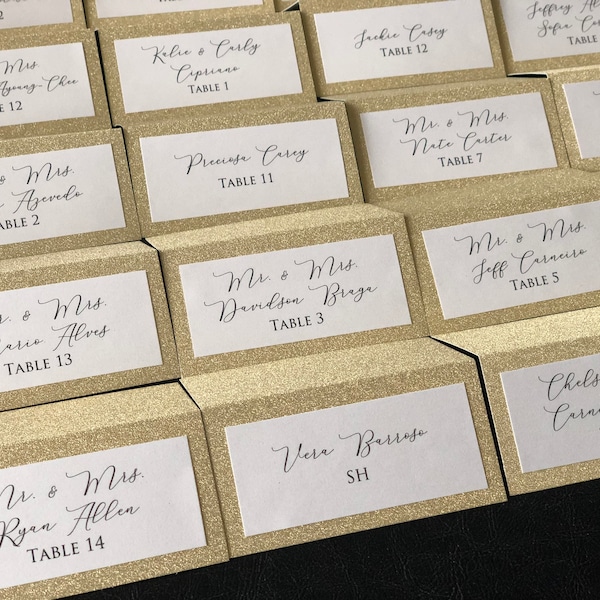 Mrs
Ayoung-Chee
12
Kalie & Carly
Cipriano
TABLE 1
Jackie Casey
TABLE 12
Jeffrey
Sofia
TABLE
& Mrs.
Azevedo
TABLE 2
Preciosa Carey
TABLE 11
Mr. & Mrs.
Nate Carter
TABLE 7
Mr. & Mrs.
Mario Alves
TABLE 13
Mr. & Mrs.
Davidson Braga
TABLE 3
Mr. & Mrs.
Jeff Carneiro
TABLE 5
Mr. & Mrs.
Ryan Allen
TABLE 14
Vera Barroso
SH
Chels
Carne